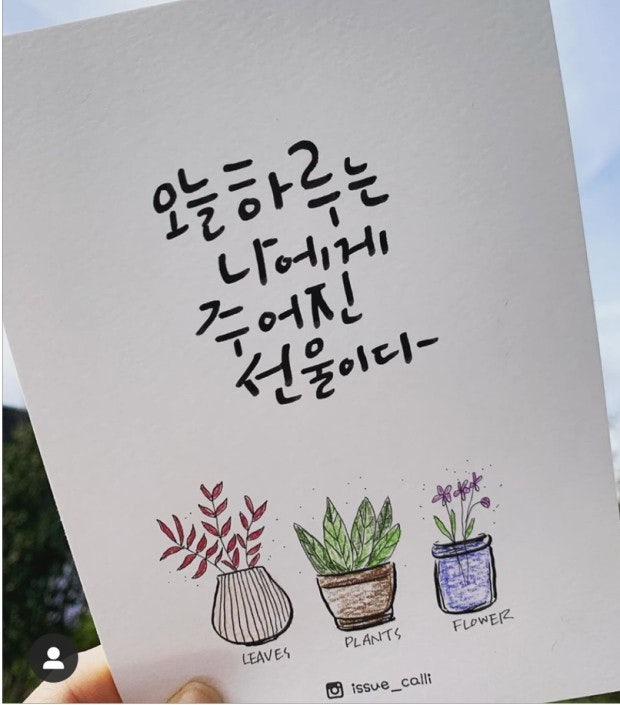 오늘 하루는
나에게
주어진
선물이다-
LEAVES
PLANTS
FLOWER
issue_calli